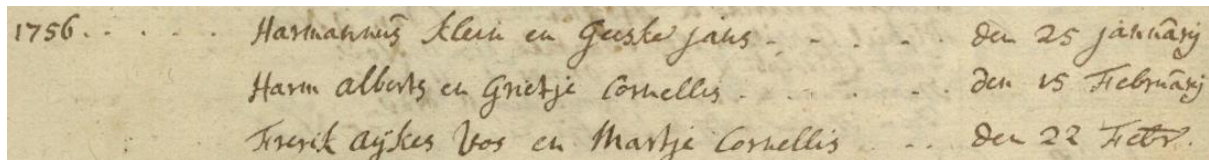 1756. . . . . Harmannus Klein en Geeske jans . . . . . den 25 januarij
Harm Alberts en Grietje Cornellis . . . . . den 15 Februarij
Frerik Aijkes Vos en Martje Cornellis . . den 22 Febr.